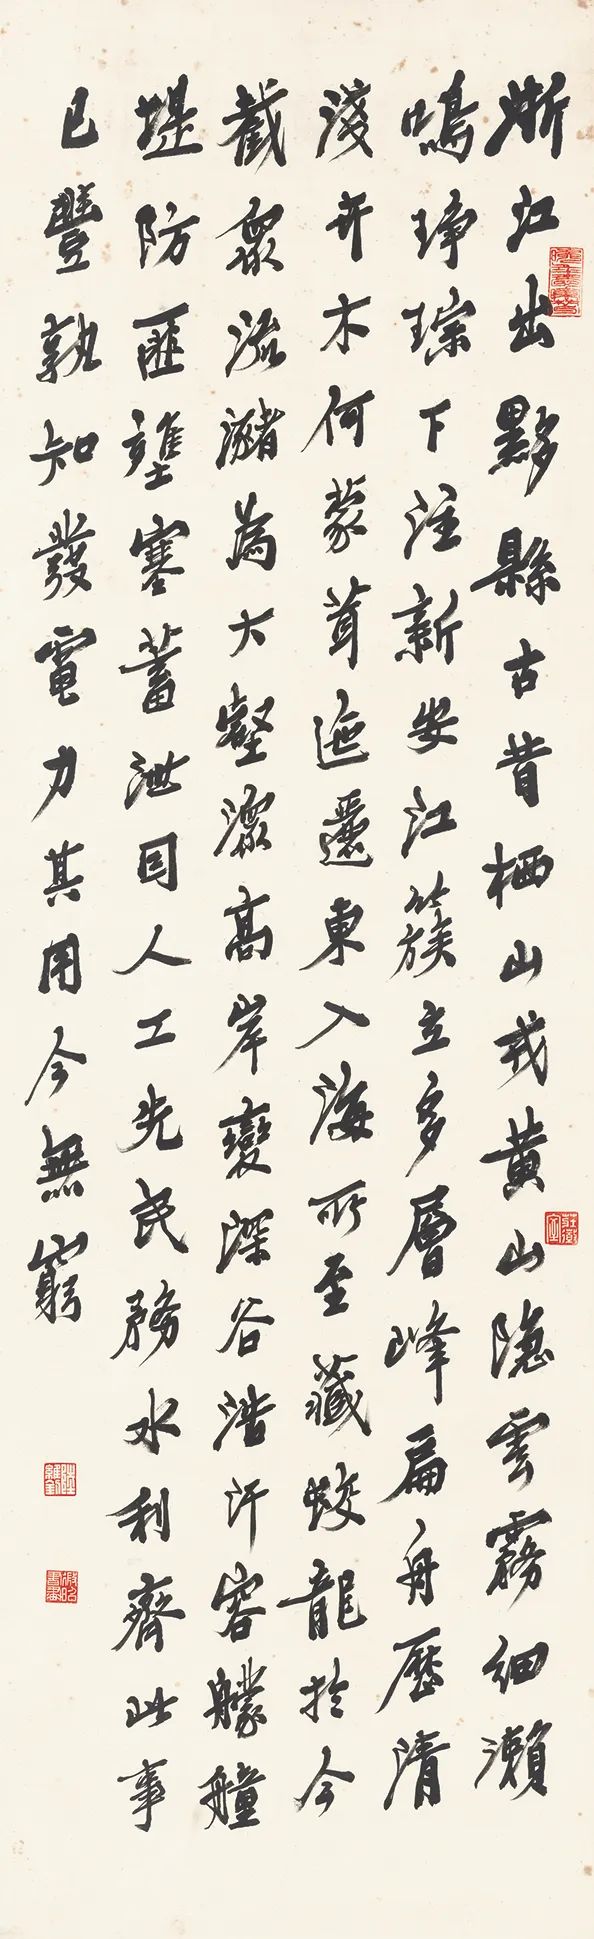 浙江出黟縣古昔栖山戎黄山隐雲霧細瀨
鳴琤琮下注新安江簇立多層峰扁舟歷清
淺卉木何蒙茸迤邐東入海所至藏蛟龍於今
截衆流瀦為大壑潨高岸變深谷浩汗容艨艟
堤防匪壅塞蓄泄同人工先民務水利齊此事
已豐孰知發電力其用今無窮